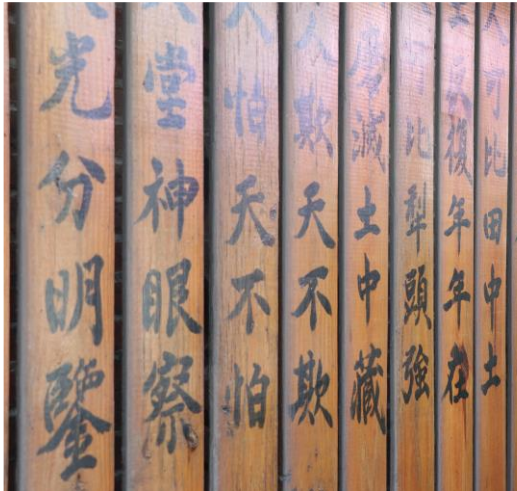 人可比田中土
復年年在
比犁頭強
磨滅土中藏
人欺天不欺
人怕天不怕
堂神眼察
光分明鑒